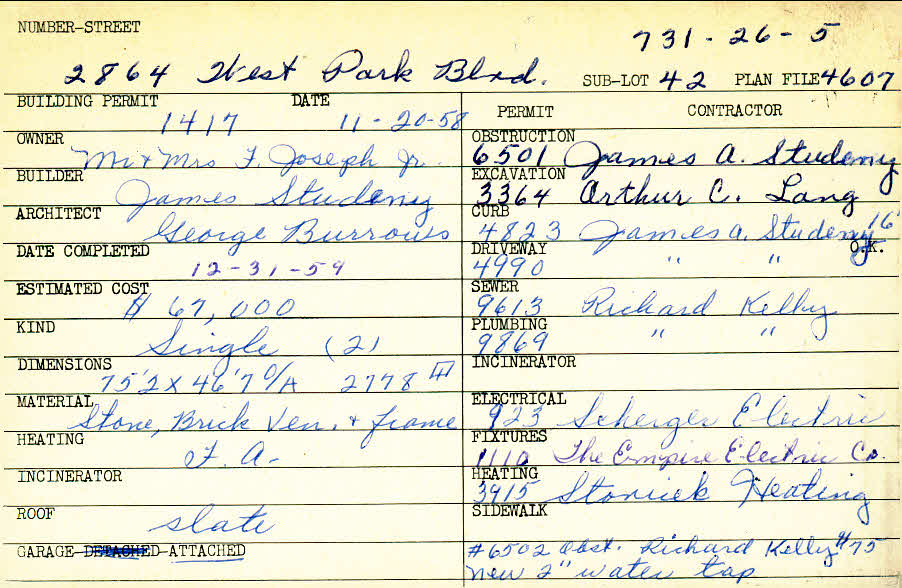 NUMBER-STREET
731-26-5
2864 West Park Blvd. SUB-LOT 42 PLAN FILE 4607
BUILDING PERMIT DATE
1417 11-20-58
OWNER
Mr & Mrs F. Joseph Jr.
BUILDER
James Studeny
ARCHITECT
George Burrows
DATE COMPLETED
12-31-59
ESTIMATED COST
$ 67,000
KIND
Single (2)
DIMENSIONS
75'2 X 46'7 O/A 2778
MATERIAL
Stone, Brick Ven. & frame
HEATING
F. A.
INCINERATOR
ROOF
slate
GARAGE-DETACHED-ATTACHED
PERMIT CONTRACTOR
OBSTRUCTION
6501 James A. Studeny
EXCAVATION
3364 Arthur C. Lang
CURB
4823 James A. Studeny 16'
DRIVEWAY O.K.
4990 " "
SEWER
9613 Richard Kelly
PLUMBING
9869 " "
INCINERATOR
ELECTRICAL
923 Electric
FIXTURES
1110 The Empire Electric Co.
HEATING
3915 Heating
SIDEWALK
#6502 Obst. Richard Kelly $75
New 2" water tap